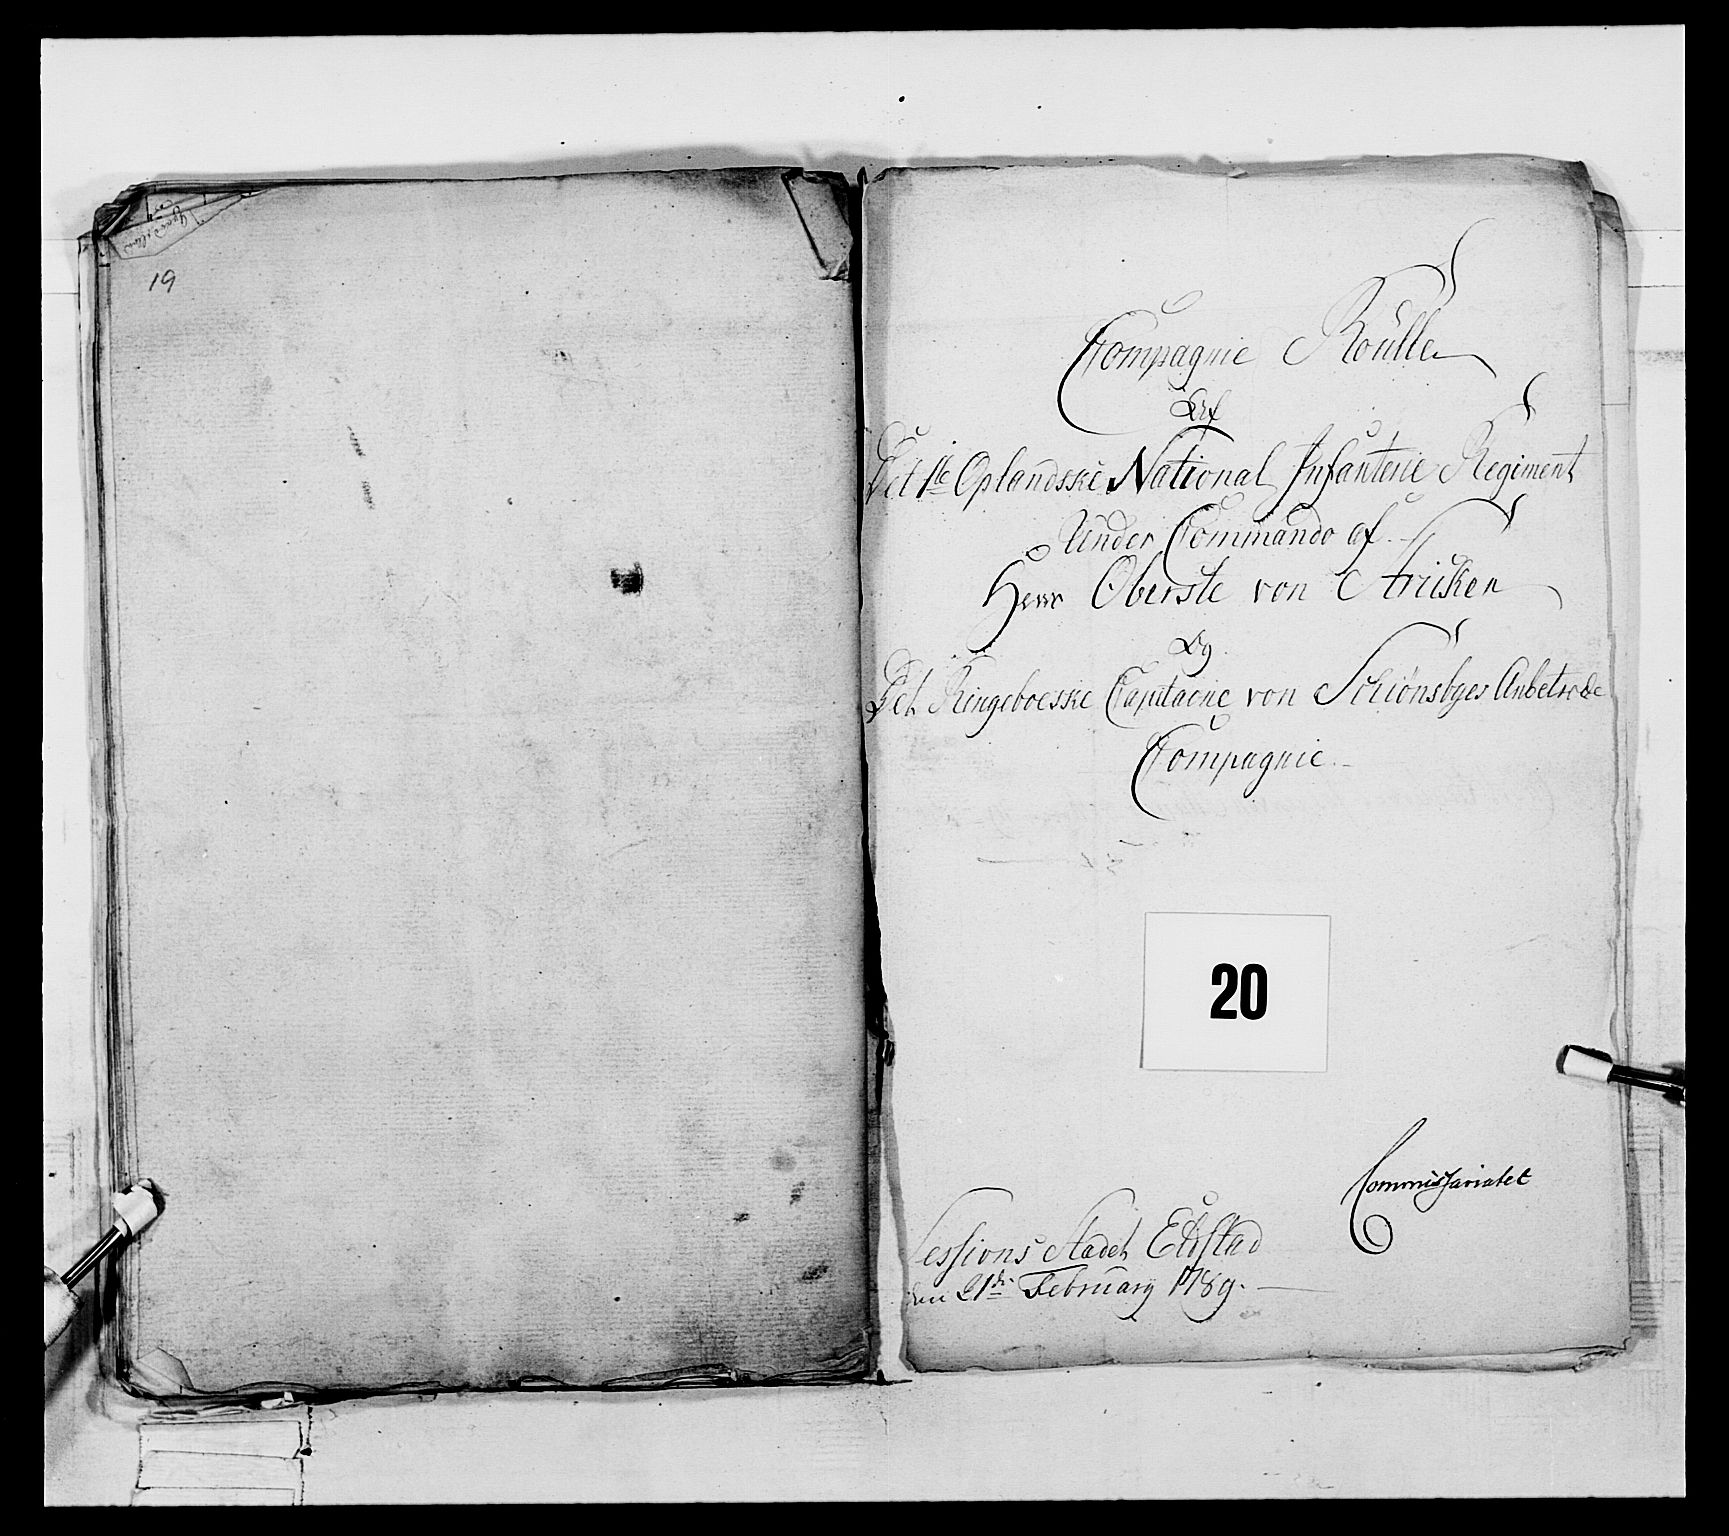 19
Compagnie Roulle
Af
Det 1te Oplandske National Infanterie Regiment
Under Commando af
Herr Oberste von
Og
Det Ringeboeske Capitaine von Schiønsbyes Anbetroede
Compagnie
20
Commissariatet
Sessions Stædet Eldstad
den 21de February 1789.